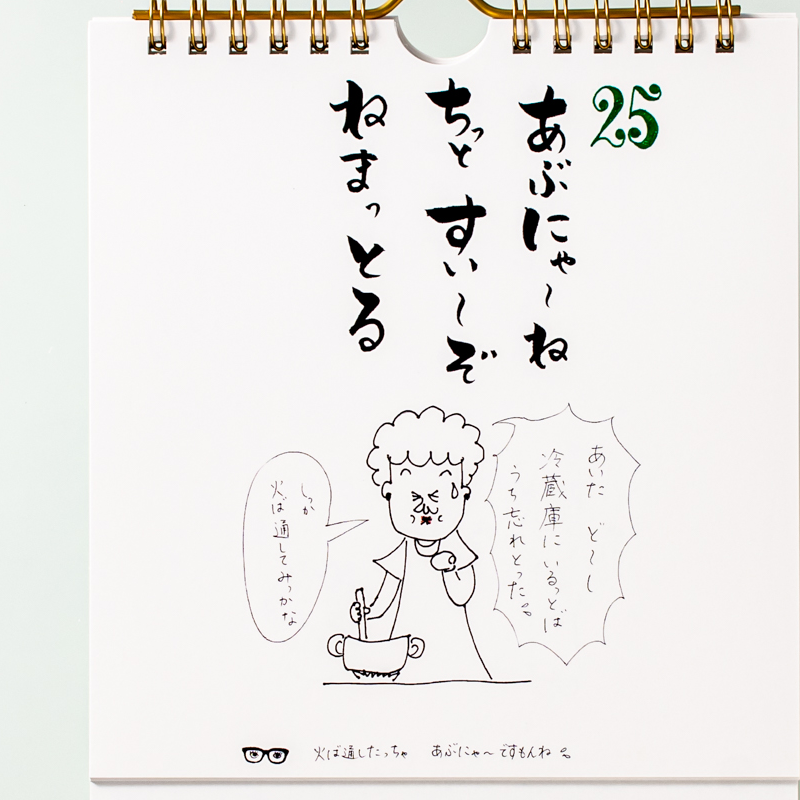 25
あぶにゃ～ね
ちっと すい～ぞ
ねまっとる
あいた ど～し
冷蔵庫にいるっどば
うち忘れとった。
しっか
火ば通してみっかな
火ば通したっちゃ あぶにゃ～ですもんね。